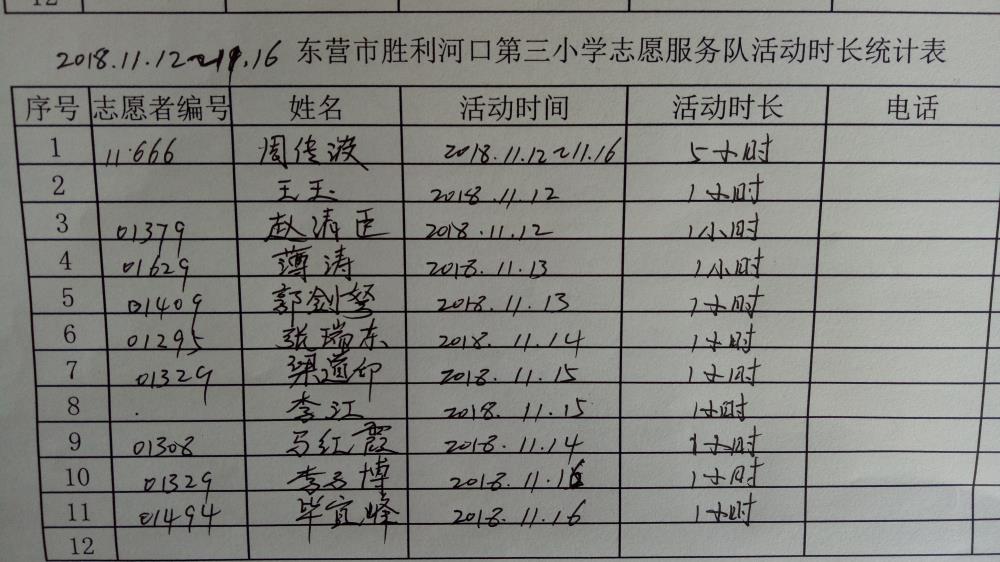 12
2018.11.12~11.16 东营市胜利河口第三小学志愿服务队活动时长统计表
序号 志愿者编号 姓名 活动时间 活动时长 电话
1 11.666 周传波 2018.11.12~11.16 5小时
2 王玉 2018.11.12 1小时
3 01379 赵清臣 2018.11.12 1小时
4 01629 薄涛 2018.11.13 1小时
5 01409 郭剑 2018.11.13 1小时
6 01295 张瑞东 2018.11.14 1小时
7 01329 渠道仰 2018.11.15 1小时
8 李江 2018.11.15 1小时
9 01308 马红霞 2018.11.14 1小时
10 01329 李子博 2018.11.16 1小时
11 01494 毕宜峰 2018.11.16 1小时
12